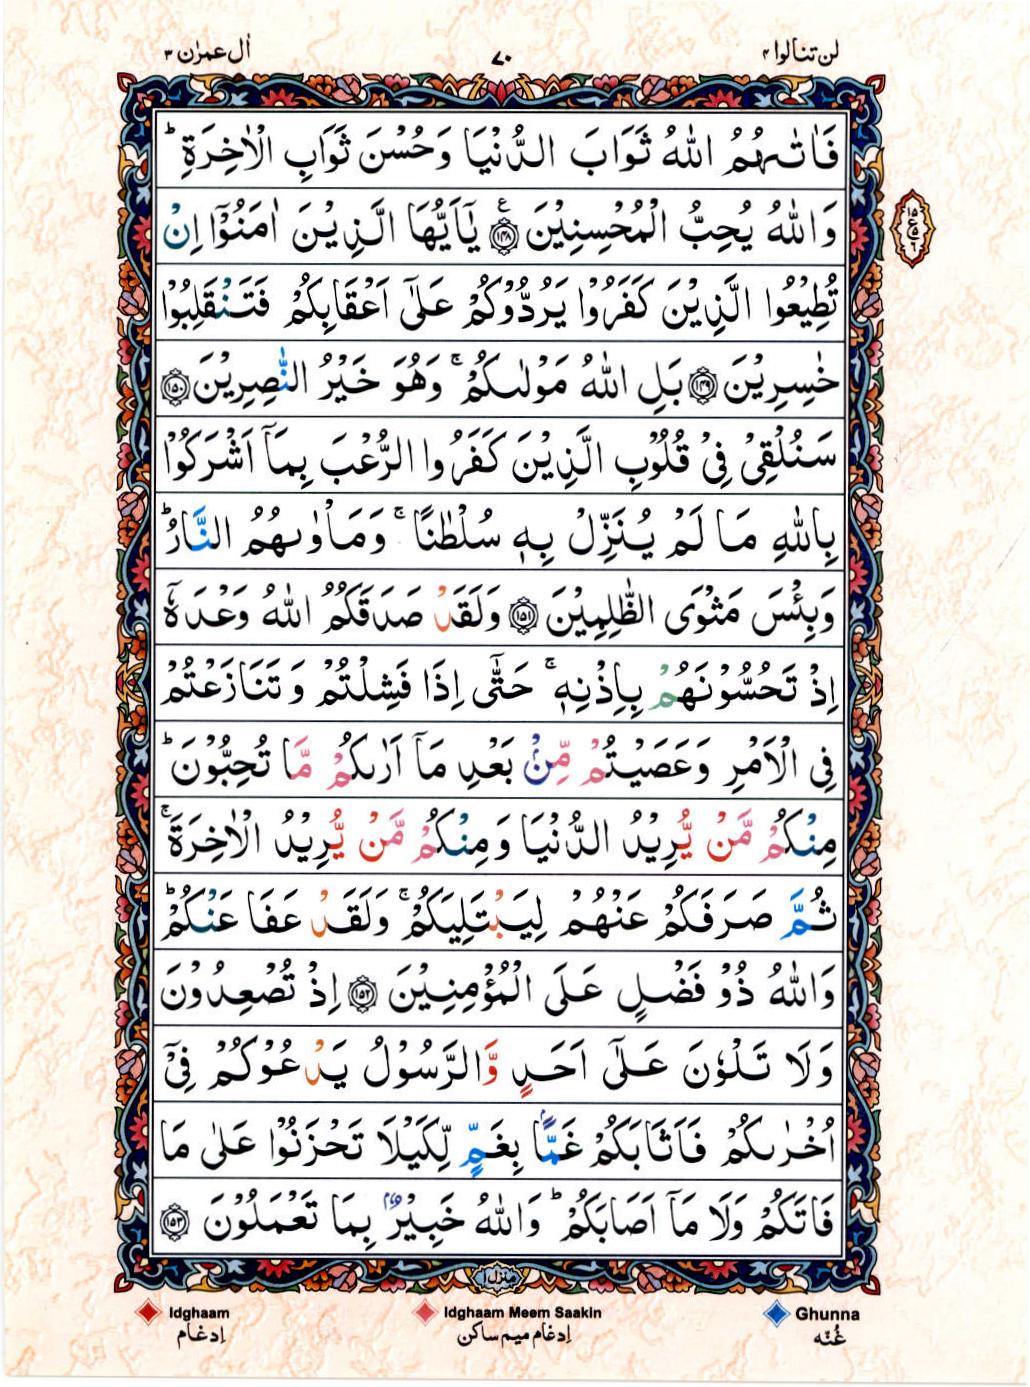 لن تنالوا ۴
۷۰
اٰل عمرٰن ۳
فَاٰتٰىهُمُ اللّٰهُ ثَوَابَ الدُّنْيَا وَحُسْنَ ثَوَابِ الْاٰخِرَةِ ؕ
وَاللّٰهُ يُحِبُّ الْمُحْسِنِيْنَ ﴿۱۴۸﴾ ع يٰۤاَيُّهَا الَّذِيْنَ اٰمَنُوْۤا اِنْ
تُطِيْعُوا الَّذِيْنَ كَفَرُوْا يَرُدُّوْكُمْ عَلٰٓى اَعْقَابِكُمْ فَتَنْقَلِبُوْا
خٰسِرِيْنَ ﴿۱۴۹﴾ بَلِ اللّٰهُ مَوْلٰىكُمْ ۚ وَهُوَ خَيْرُ النّٰصِرِيْنَ ﴿۱۵۰﴾
سَنُلْقِىْ فِىْ قُلُوْبِ الَّذِيْنَ كَفَرُوا الرُّعْبَ بِمَاۤ اَشْرَكُوْا
بِاللّٰهِ مَا لَمْ يُنَزِّلْ بِهٖ سُلْطٰنًا ۚ وَمَاْوٰىهُمُ النَّارُ ؕ
وَبِئْسَ مَثْوَى الظّٰلِمِيْنَ ﴿۱۵۱﴾ وَلَقَدْ صَدَقَكُمُ اللّٰهُ وَعْدَهٗۤ
اِذْ تَحُسُّوْنَهُمْ بِاِذْنِهٖ ۚ حَتّٰٓى اِذَا فَشِلْتُمْ وَتَنَازَعْتُمْ
فِى الْاَمْرِ وَعَصَيْتُمْ مِّنْۢ بَعْدِ مَاۤ اَرٰىكُمْ مَّا تُحِبُّوْنَ ؕ
مِنْكُمْ مَّنْ يُّرِيْدُ الدُّنْيَا وَمِنْكُمْ مَّنْ يُّرِيْدُ الْاٰخِرَةَ ۚ
ثُمَّ صَرَفَكُمْ عَنْهُمْ لِيَبْتَلِيَكُمْ ۚ وَلَقَدْ عَفَا عَنْكُمْ ؕ
وَاللّٰهُ ذُوْ فَضْلٍ عَلَى الْمُؤْمِنِيْنَ ﴿۱۵۲﴾ اِذْ تُصْعِدُوْنَ
وَلَا تَلْوٗنَ عَلٰٓى اَحَدٍ وَّالرَّسُوْلُ يَدْعُوْكُمْ فِىْۤ
اُخْرٰىكُمْ فَاَثَابَكُمْ غَمًّاۢ بِغَمٍّ لِّكَيْلَا تَحْزَنُوْا عَلٰى مَا
فَاتَكُمْ وَلَا مَاۤ اَصَابَكُمْ ؕ وَاللّٰهُ خَبِيْرٌۢ بِمَا تَعْمَلُوْنَ ﴿۱۵۳﴾
منزل ۱
Idghaam
Idghaam Meem Saakin
Ghunna
اِدغام
اِدغام میم ساکن
غُنّه